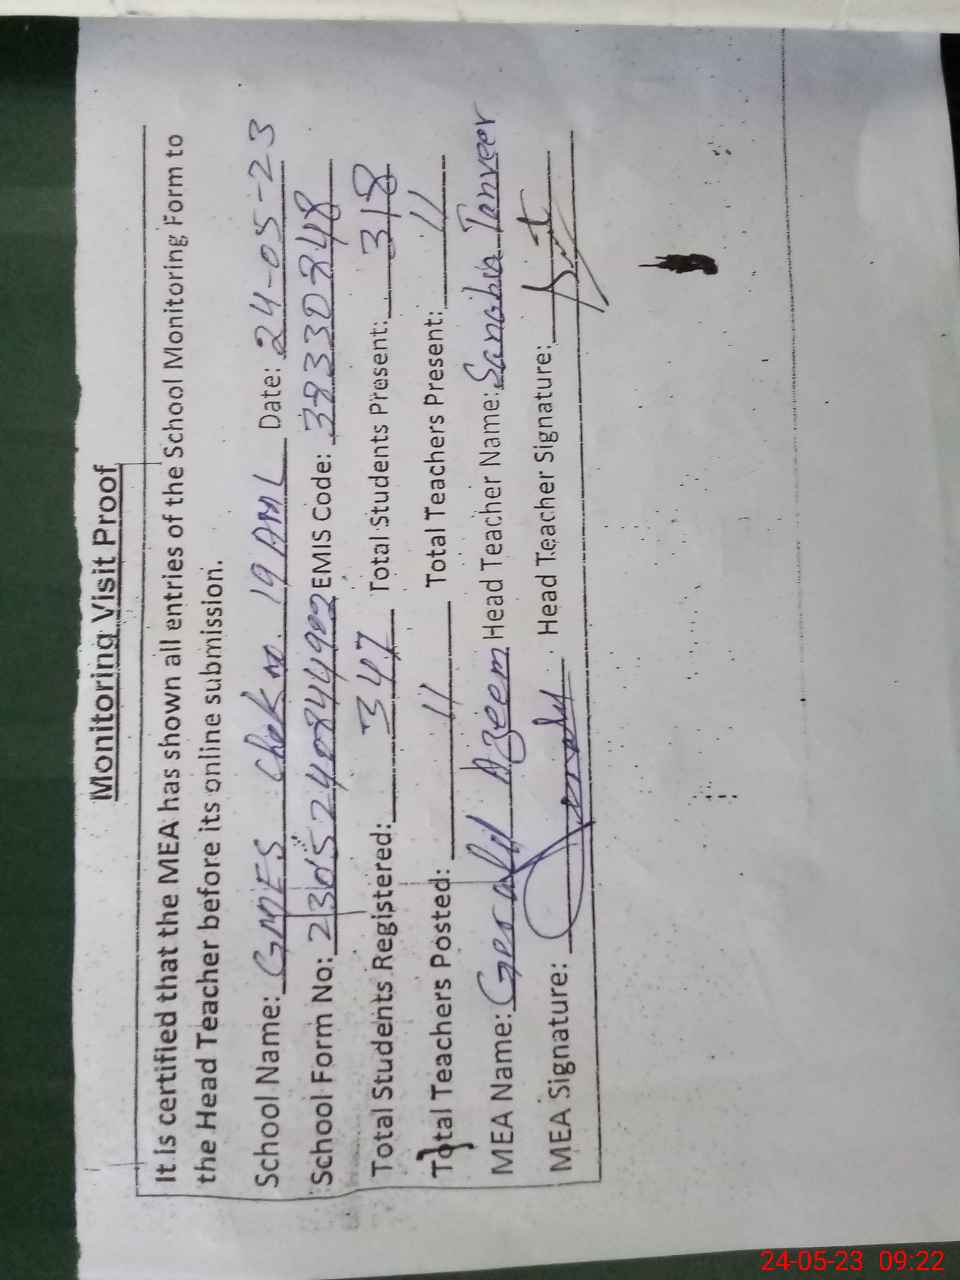 Monitoring Visit Proof
It is certified that the MEA has shown all entries of the School Monitoring Form to
the Head Teacher before its online submission.
School Name: GMES Chak no. 19 AML Date: 24-05-23
School Form No: EMIS Code: 38330848
Total Students Registered: 347 Total Students Present: 318
Total Teachers Posted: 11 Total Teachers Present: 11
MEA Name: Azeem Head Teacher Name: Sanobia Tanveer
MEA Signature: Head Teacher Signature:
24-05-23 09:22